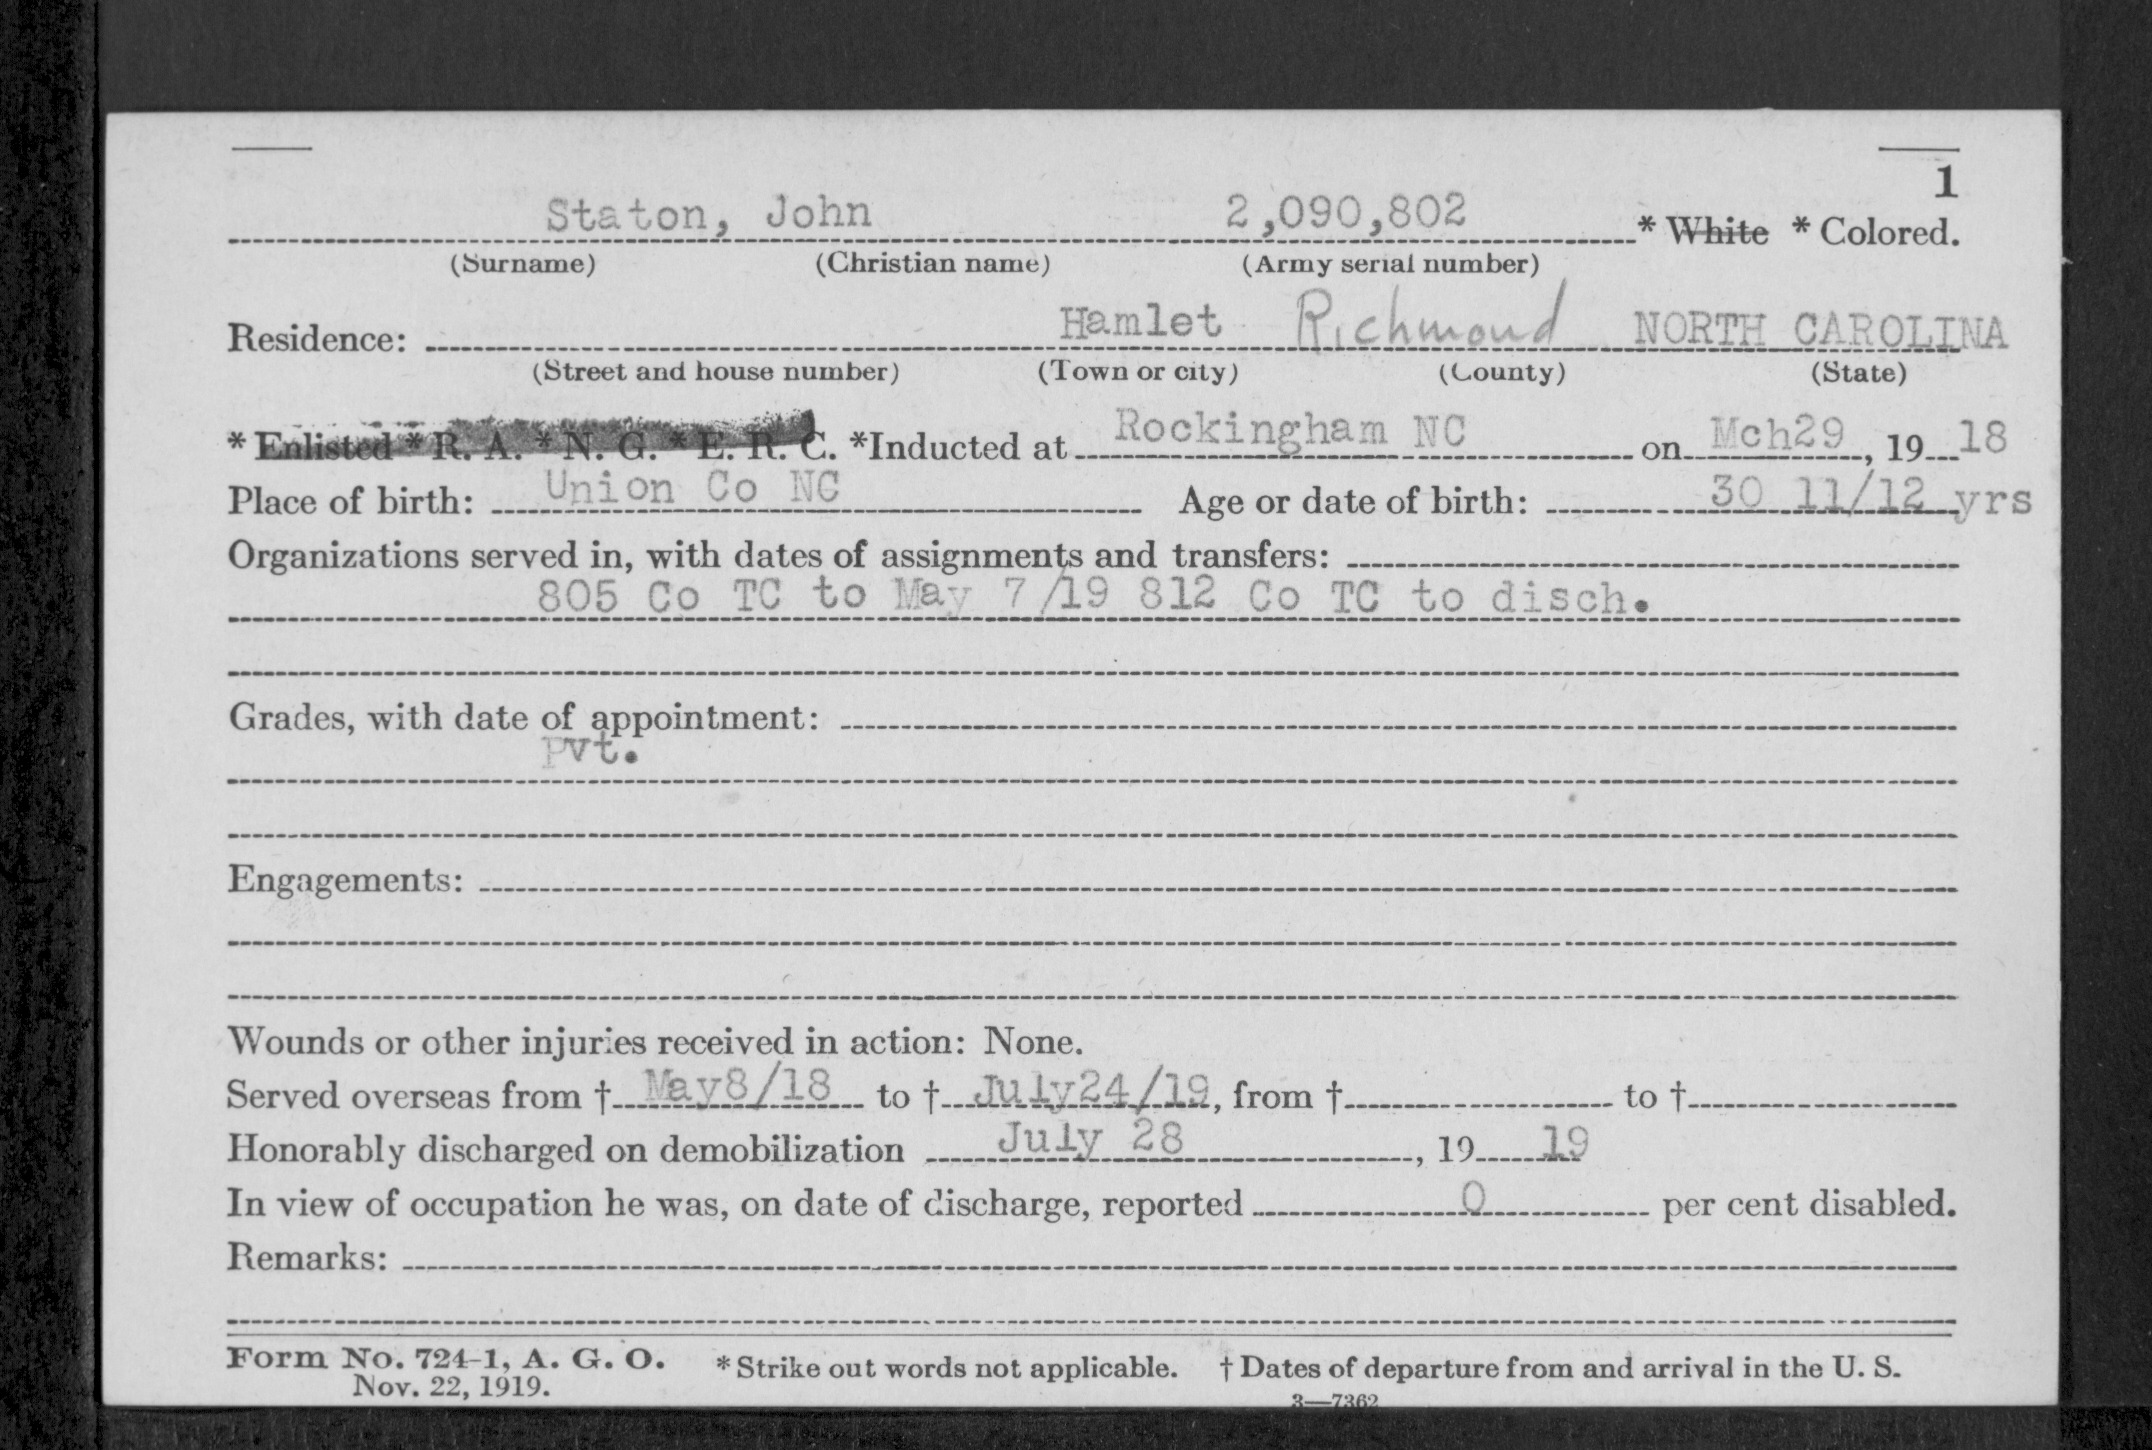 1
Staton, John 2,090,802 * White * Colored.
(Surname) (Christian name) (Army serial number)
Residence: Hamlet Richmond NORTH CAROLINA
(Street and house number) (Town or city) (County) (State)
* Enlisted * R. A. * N. G. * E. R. C. *Inducted at Rockingham NC on Mch29, 19 18
Place of birth: Union Co NC Age or date of birth: 30 11/12 yrs
Organizations served in, with dates of assignments and transfers:
805 Co TC to May 7/19 812 Co TC to disch.
Grades, with date of appointment:
Pvt.
Engagements:
Wounds or other injuries received in action: None.
Served overseas from † May8/18 to † July24/19, from † to †
Honorably discharged on demobilization July 28, 19 19
In view of occupation he was, on date of discharge, reported 0 per cent disabled.
Remarks:
Form No. 724-1, A. G. O. * Strike out words not applicable. † Dates of departure from and arrival in the U. S.
Nov. 22, 1919.
3—7362